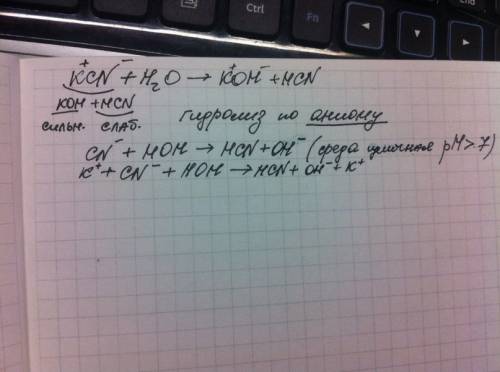 Ctrl
Fn
End
K⁺CN⁻ + H₂O → K⁺OH⁻ + HCN
KOH + HCN
сильн. слаб.
гидролиз по аниону
CN⁻ + HOH → HCN + OH⁻ (среда щелочная pH > 7)
K⁺ + CN⁻ + HOH → HCN + OH⁻ + K⁺